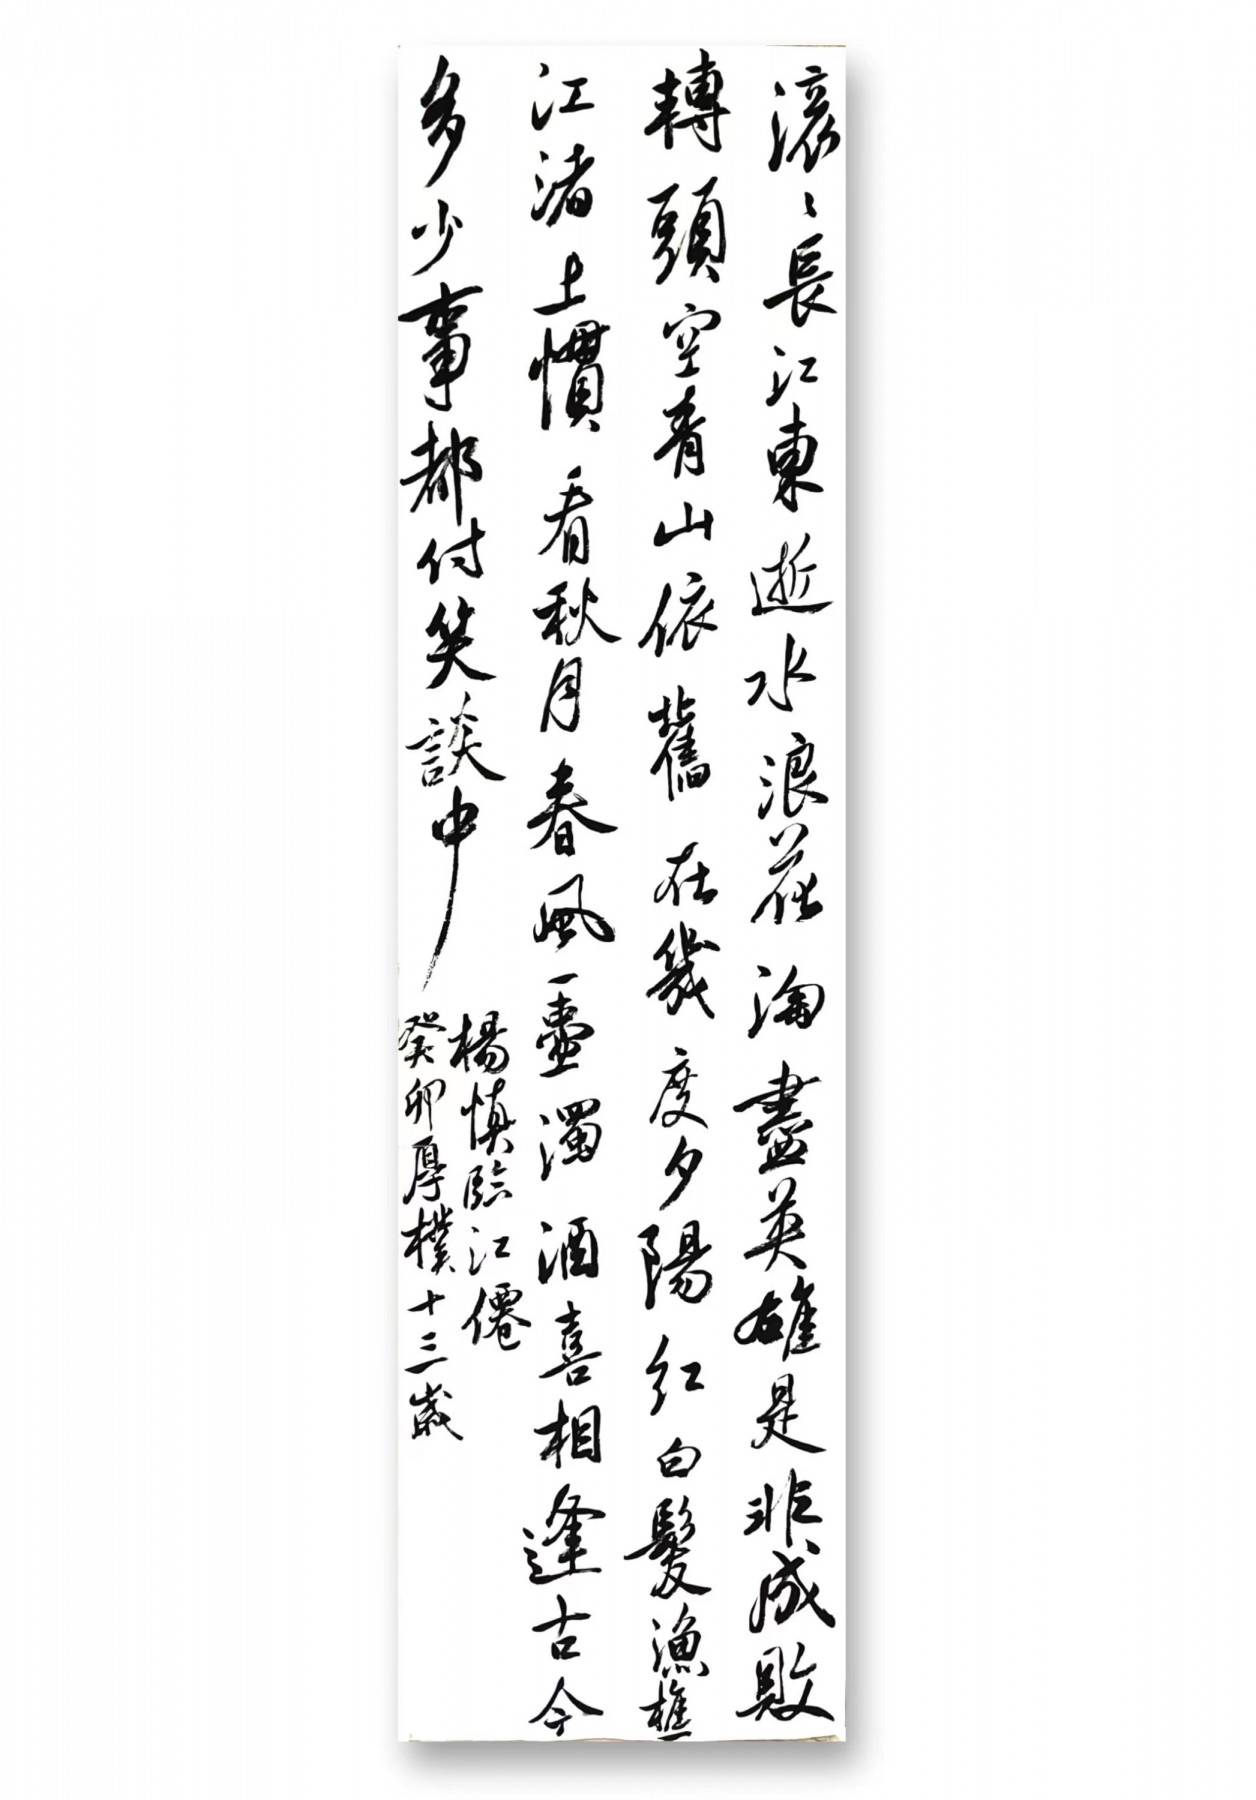 滚〻長江東逝水浪花淘盡英雄是非成敗
轉頭空青山依舊在幾度夕陽紅白髮漁樵
江渚上慣看秋月春風一壺濁酒喜相逢古今
多少事都付笑談中
楊慎臨江僊
癸卯厚樸十三歲